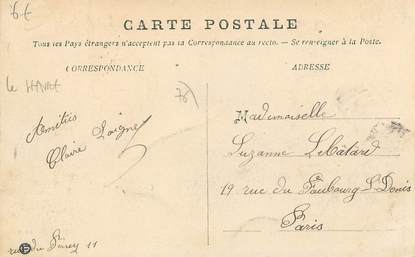 6€
CARTE POSTALE
Tous les Pays étrangers n'acceptent pas la Correspondance au recto. — Se renseigner à la Poste.
CORRESPONDANCE
ADRESSE
le HAVRE
76
Amitiés
Claire Loigne
Mademoiselle
Suzanne LeBâtard
19 rue du Faubourg St Denis
Paris
rue du 11